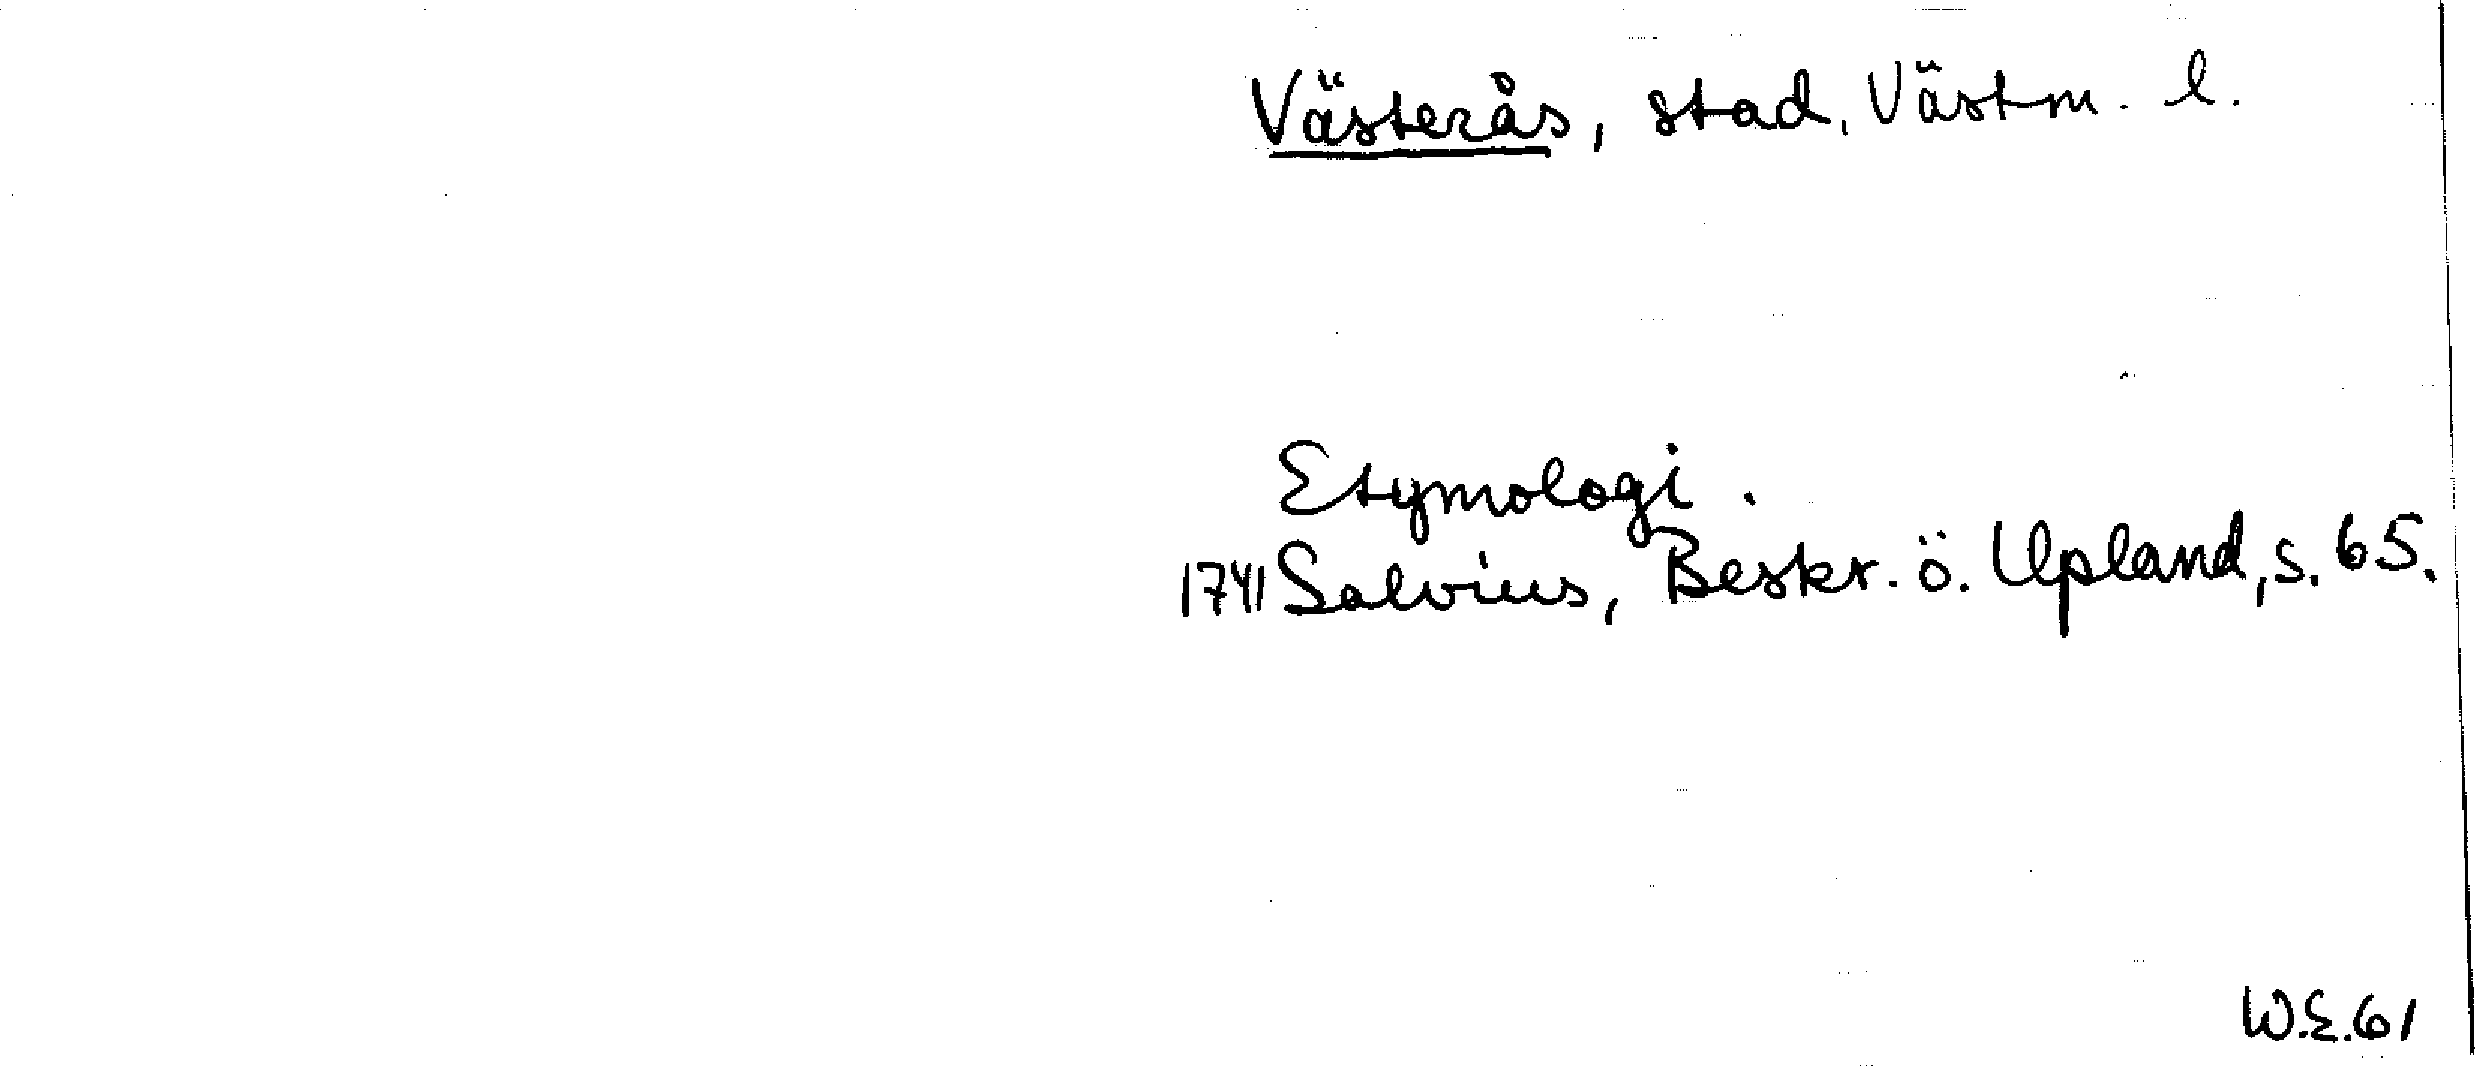 Västerås, stad, Västm. l.
Etymologi.
1741 Salvius, Beskr. ö. Upland, s. 65.
W.E.61